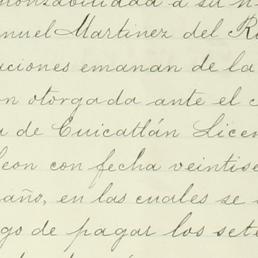 onsabilidad a su n
anuel Martinez del R
aciones emanan de la
on otorgada ante el
a de Cuicatlán Licen
leon con fecha veintise
año, en las cuales se
go de pagar los sete